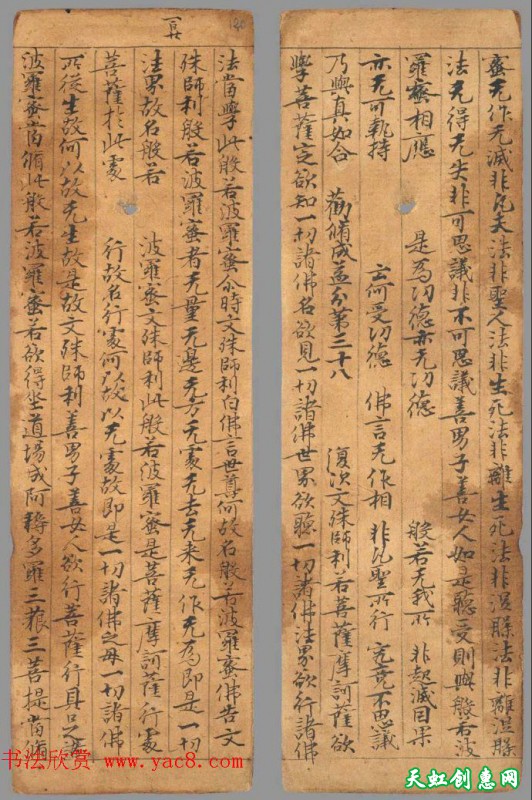 蜜无作无滅非凡夫法非聖人法非生死法非離生死法非涅槃法非離涅槃
法无得无失非可思議非不可思議善男子善女人如是聽受則與般若波
羅蜜相應 是為功德亦无功德 般若无我所 非起滅因果
亦无可執持 云何受功德 佛言无作相 非凡聖所行 究竟不思議
乃與真如合 勸脩成益分第三十八 復次文殊師利若菩薩摩訶薩欲
學菩薩定欲知一切諸佛名欲見一切諸佛世界欲聽一切諸佛法界欲行諸佛
法當學此般若波羅蜜尒時文殊師利白佛言世尊何故名般若波羅蜜佛告文
殊師利般若波羅蜜者无量无邊无方无處无去无来无作无為即是一切
法界故名般若 波羅蜜文殊師利此般若波羅蜜是菩薩摩訶薩行處
菩薩於此處 行故名行處何以故以无處故即是一切諸佛之母一切諸佛
所從生故何以故无生故是故文殊師利善男子善女人欲行菩薩行具足諸
波羅蜜當脩此般若波羅蜜若欲得坐道場成阿耨多羅三藐三菩提當脩
书法欣赏 www.yac8.com
天虹创惠网